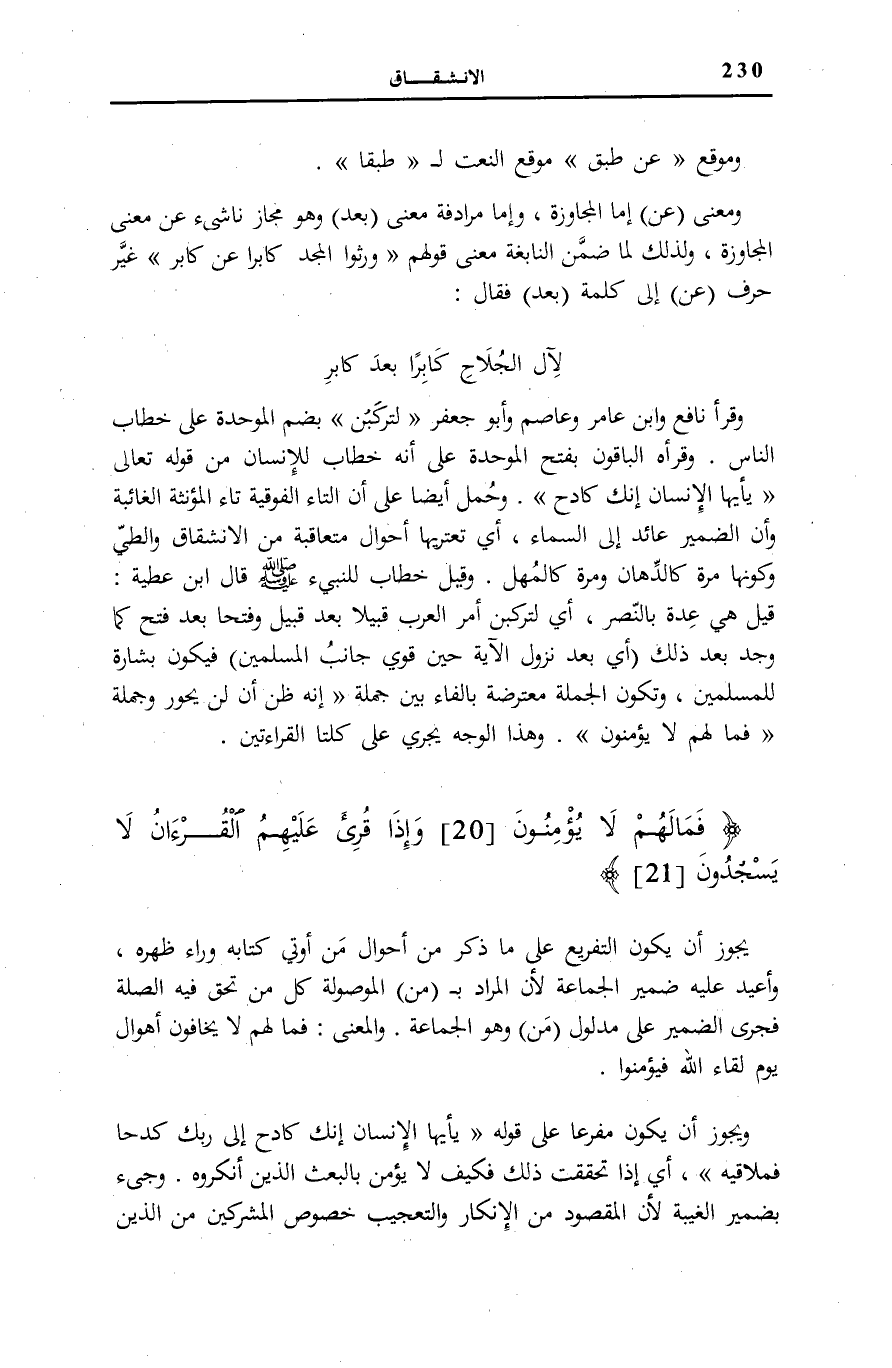 230
الانـشـقـــاق
وموقع « عن طبق » موقع النعت لـ « طبقا » .
ومعنى (عن) إما المجاوزة ، وإما مرادفة معنى (بعد) وهو مجاز ناشىء عن معنى
المجاوزة ، ولذلك لما ضمَّن النابغة معنى قولهم « ورثوا المجد كابرا عن كابر » غيَّر
حرف (عن) إلى كلمة (بعد) فقال :
لِآل الجُلَاحِ كَابِرًا بعدَ كابرِ
وقرأ نافع وابن عامر وعاصم وأبو جعفر « لتركَبُن » بضم الموحدة على خطاب
الناس . وقرأه الباقون بفتح الموحدة على أنه خطاب للإنسان من قوله تعالى
« يأيها الإنسان إنك كادح » . وحُمل أيضا على أن التاء الفوقية تاء المؤنثة الغائبة
وأن الضمير عائد إلى السماء ، أي تعتريها أحوال متعاقبة من الانشقاق والطيّ
وكونها مرة كالدِّهان ومرة كالمُهل . وقيل خطاب للنبيء ﷺ قال ابن عطية :
قيل هي عِدة بالنّصر ، أي لتركبن أمر العرب قبيلا بعد قبيل وفتحا بعد فتح كما
وجد بعد ذلك (أي بعد نزول الآية حين قوي جانبُ المسلمين) فيكون بشارة
للمسلمين ، وتكون الجملة معترضة بالفاء بين جملة « إنه ظن أن لن يحور وجملة
« فما لهم لا يؤمنون » . وهذا الوجه يجري على كلتا القراءتين .
﴿ فَمَالَهُمْ لَا يُؤْمِنُونَ [20] وَإِذَا قُرِئَ عَلَيْهِمُ ٱلْقُـــرْءَانُ لَا
يَسْجُدُونَ [21] ﴾
يجوز أن يكون التفريع على ما ذكر من أحوال مَن أوتي كتابه وراء ظهره ،
وأعيد عليه ضمير الجماعة لأن المراد بـ (من) الموصولة كل من تحق فيه الصلة
فجرى الضمير على مدلول (مَن) وهو الجماعة . والمعنى : فما لهم لا يخافون أهوال
يوم لقاء الله فيؤمنوا .
ويجوز أن يكون مفرعا على قوله « يأيها الإنسان إنك كادح إلى ربك كدحا
فملاقيه » ، أي إذا تحققت ذلك فكيف لا يؤمن بالبعث الذين أنكروه . وجىء
بضمير الغيبة لأن المقصود من الإنكار والتعجيب خصوص المشركين من الذين